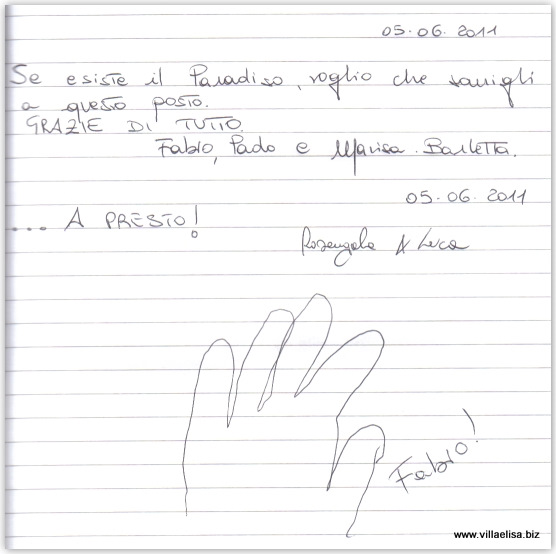 05.06.2011
Se esiste il Paradiso, voglio che somigli
a questo posto.
GRAZIE DI TUTTO.
Fabio, Paolo e Marisa. Barletta.
05.06.2011
... A PRESTO!
Rosangela & Luca
Fabio!
www.villaelisa.biz